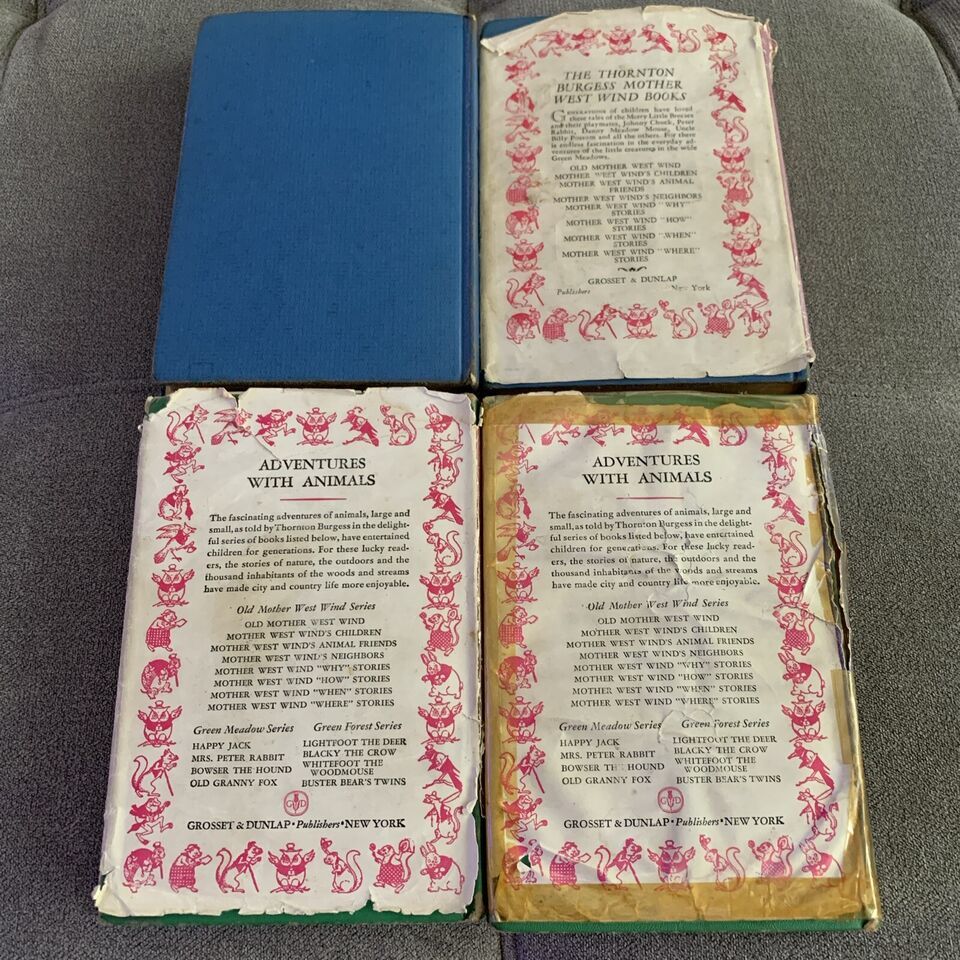 THE THORNTON
BURGESS MOTHER
WEST WIND BOOKS
GENERATIONS of children have loved
these tales of the Merry Little Breezes
and their playmates, Johnny Chuck, Peter
Rabbit, Danny Meadow Mouse, Uncle
Billy Possum and all the others. For there
is endless fascination in the everyday ad-
ventures of the little creatures in the wide
Green Meadows.
OLD MOTHER WEST WIND
MOTHER WEST WIND'S CHILDREN
MOTHER WEST WIND'S ANIMAL
FRIENDS
MOTHER WEST WIND'S NEIGHBORS
MOTHER WEST WIND "WHY"
STORIES
MOTHER WEST WIND "HOW"
STORIES
MOTHER WEST WIND "WHEN"
STORIES
MOTHER WEST WIND "WHERE"
STORIES
GROSSET & DUNLAP
Publishers New York
ADVENTURES
WITH ANIMALS
The fascinating adventures of animals, large and
small, as told by Thornton Burgess in the delight-
ful series of books listed below, have entertained
children for generations. For these lucky read-
ers, the stories of nature, the outdoors and the
thousand inhabitants of the woods and streams
have made city and country life more enjoyable.
Old Mother West Wind Series
OLD MOTHER WEST WIND
MOTHER WEST WIND'S CHILDREN
MOTHER WEST WIND'S ANIMAL FRIENDS
MOTHER WEST WIND'S NEIGHBORS
MOTHER WEST WIND "WHY" STORIES
MOTHER WEST WIND "HOW" STORIES
MOTHER WEST WIND "WHEN" STORIES
MOTHER WEST WIND "WHERE" STORIES
Green Meadow Series
HAPPY JACK
MRS. PETER RABBIT
BOWSER THE HOUND
OLD GRANNY FOX
Green Forest Series
LIGHTFOOT THE DEER
BLACKY THE CROW
WHITEFOOT THE
WOODMOUSE
BUSTER BEAR'S TWINS
G D
GROSSET & DUNLAP • Publishers • NEW YORK
ADVENTURES
WITH ANIMALS
The fascinating adventures of animals, large and
small, as told by Thornton Burgess in the delight-
ful series of books listed below, have entertained
children for generations. For these lucky read-
ers, the stories of nature, the outdoors and the
thousand inhabitants of the woods and streams
have made city and country life more enjoyable.
Old Mother West Wind Series
OLD MOTHER WEST WIND
MOTHER WEST WIND'S CHILDREN
MOTHER WEST WIND'S ANIMAL FRIENDS
MOTHER WEST WIND'S NEIGHBORS
MOTHER WEST WIND "WHY" STORIES
MOTHER WEST WIND "HOW" STORIES
MOTHER WEST WIND "WHEN" STORIES
MOTHER WEST WIND "WHERE" STORIES
Green Meadow Series
HAPPY JACK
MRS. PETER RABBIT
BOWSER THE HOUND
OLD GRANNY FOX
Green Forest Series
LIGHTFOOT THE DEER
BLACKY THE CROW
WHITEFOOT THE
WOODMOUSE
BUSTER BEAR'S TWINS
G D
GROSSET & DUNLAP • Publishers • NEW YORK